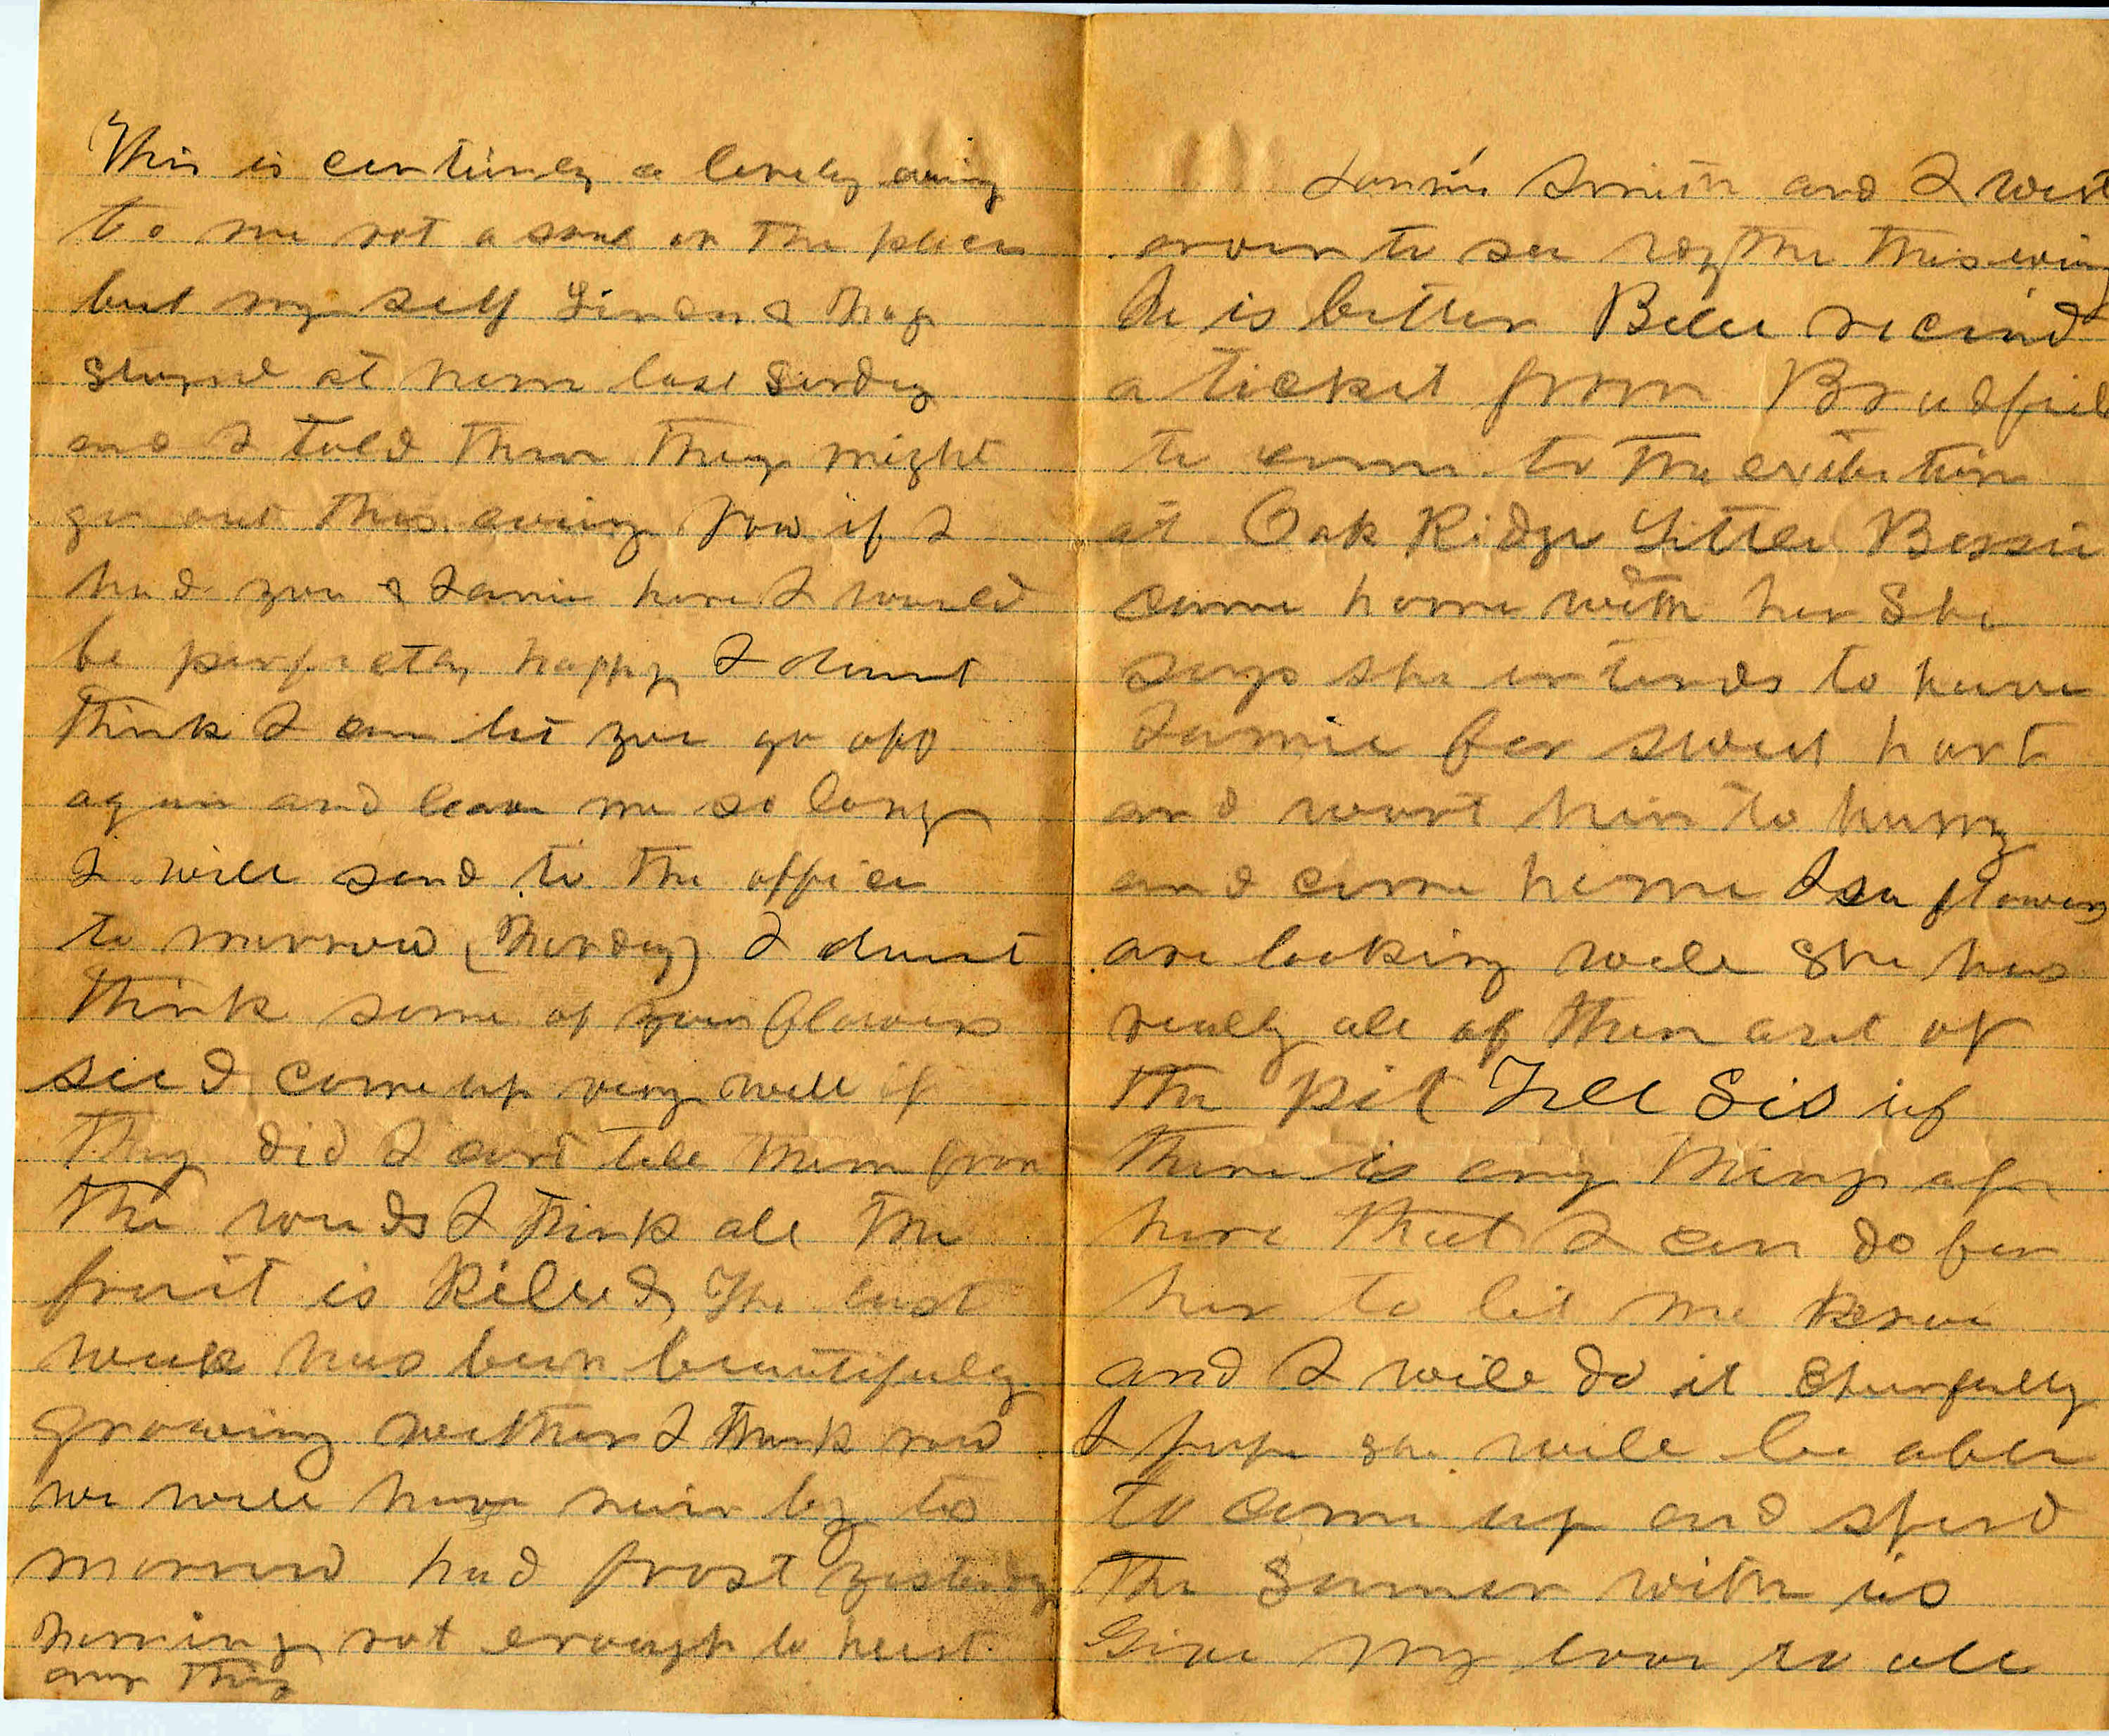 This is certinly a lonely evning
to me not a soul on the place
but my self Linden &
stayed at home last Sunday
and I told them they might
go out this evning Now if I
had you & Jamie here I would
be perfectly happy I dont
think I can let you go off
again and leave me so long
I will send to the office
to morrow (Monday) I dont
think some of your flowers
seed come up very well if
they did I cant tell them from
the weeds I think all the
fruit is killed, The last
week has been beautifuly
growing wether I think now
we will have rain by to
morrow had frost yesterday
morning not enough to hurt
any thing
Smith and I went
over to see this evning
he is better Bell recievd
a ticket from Bradfield
to come to the exibition
at Oak Ridge Little Bessie
come home with her She
says she intends to have
Jamie for sweet hart
and want him to hurry
and come home flowers
are looking well She has
nearly all of them out of
the pit Tell Sis if
there is any thing up
here that I can do for
her to let me know
and I will do it cheerfully
I hope she will be able
to come up and spend
the Summer with us
Give my love to all